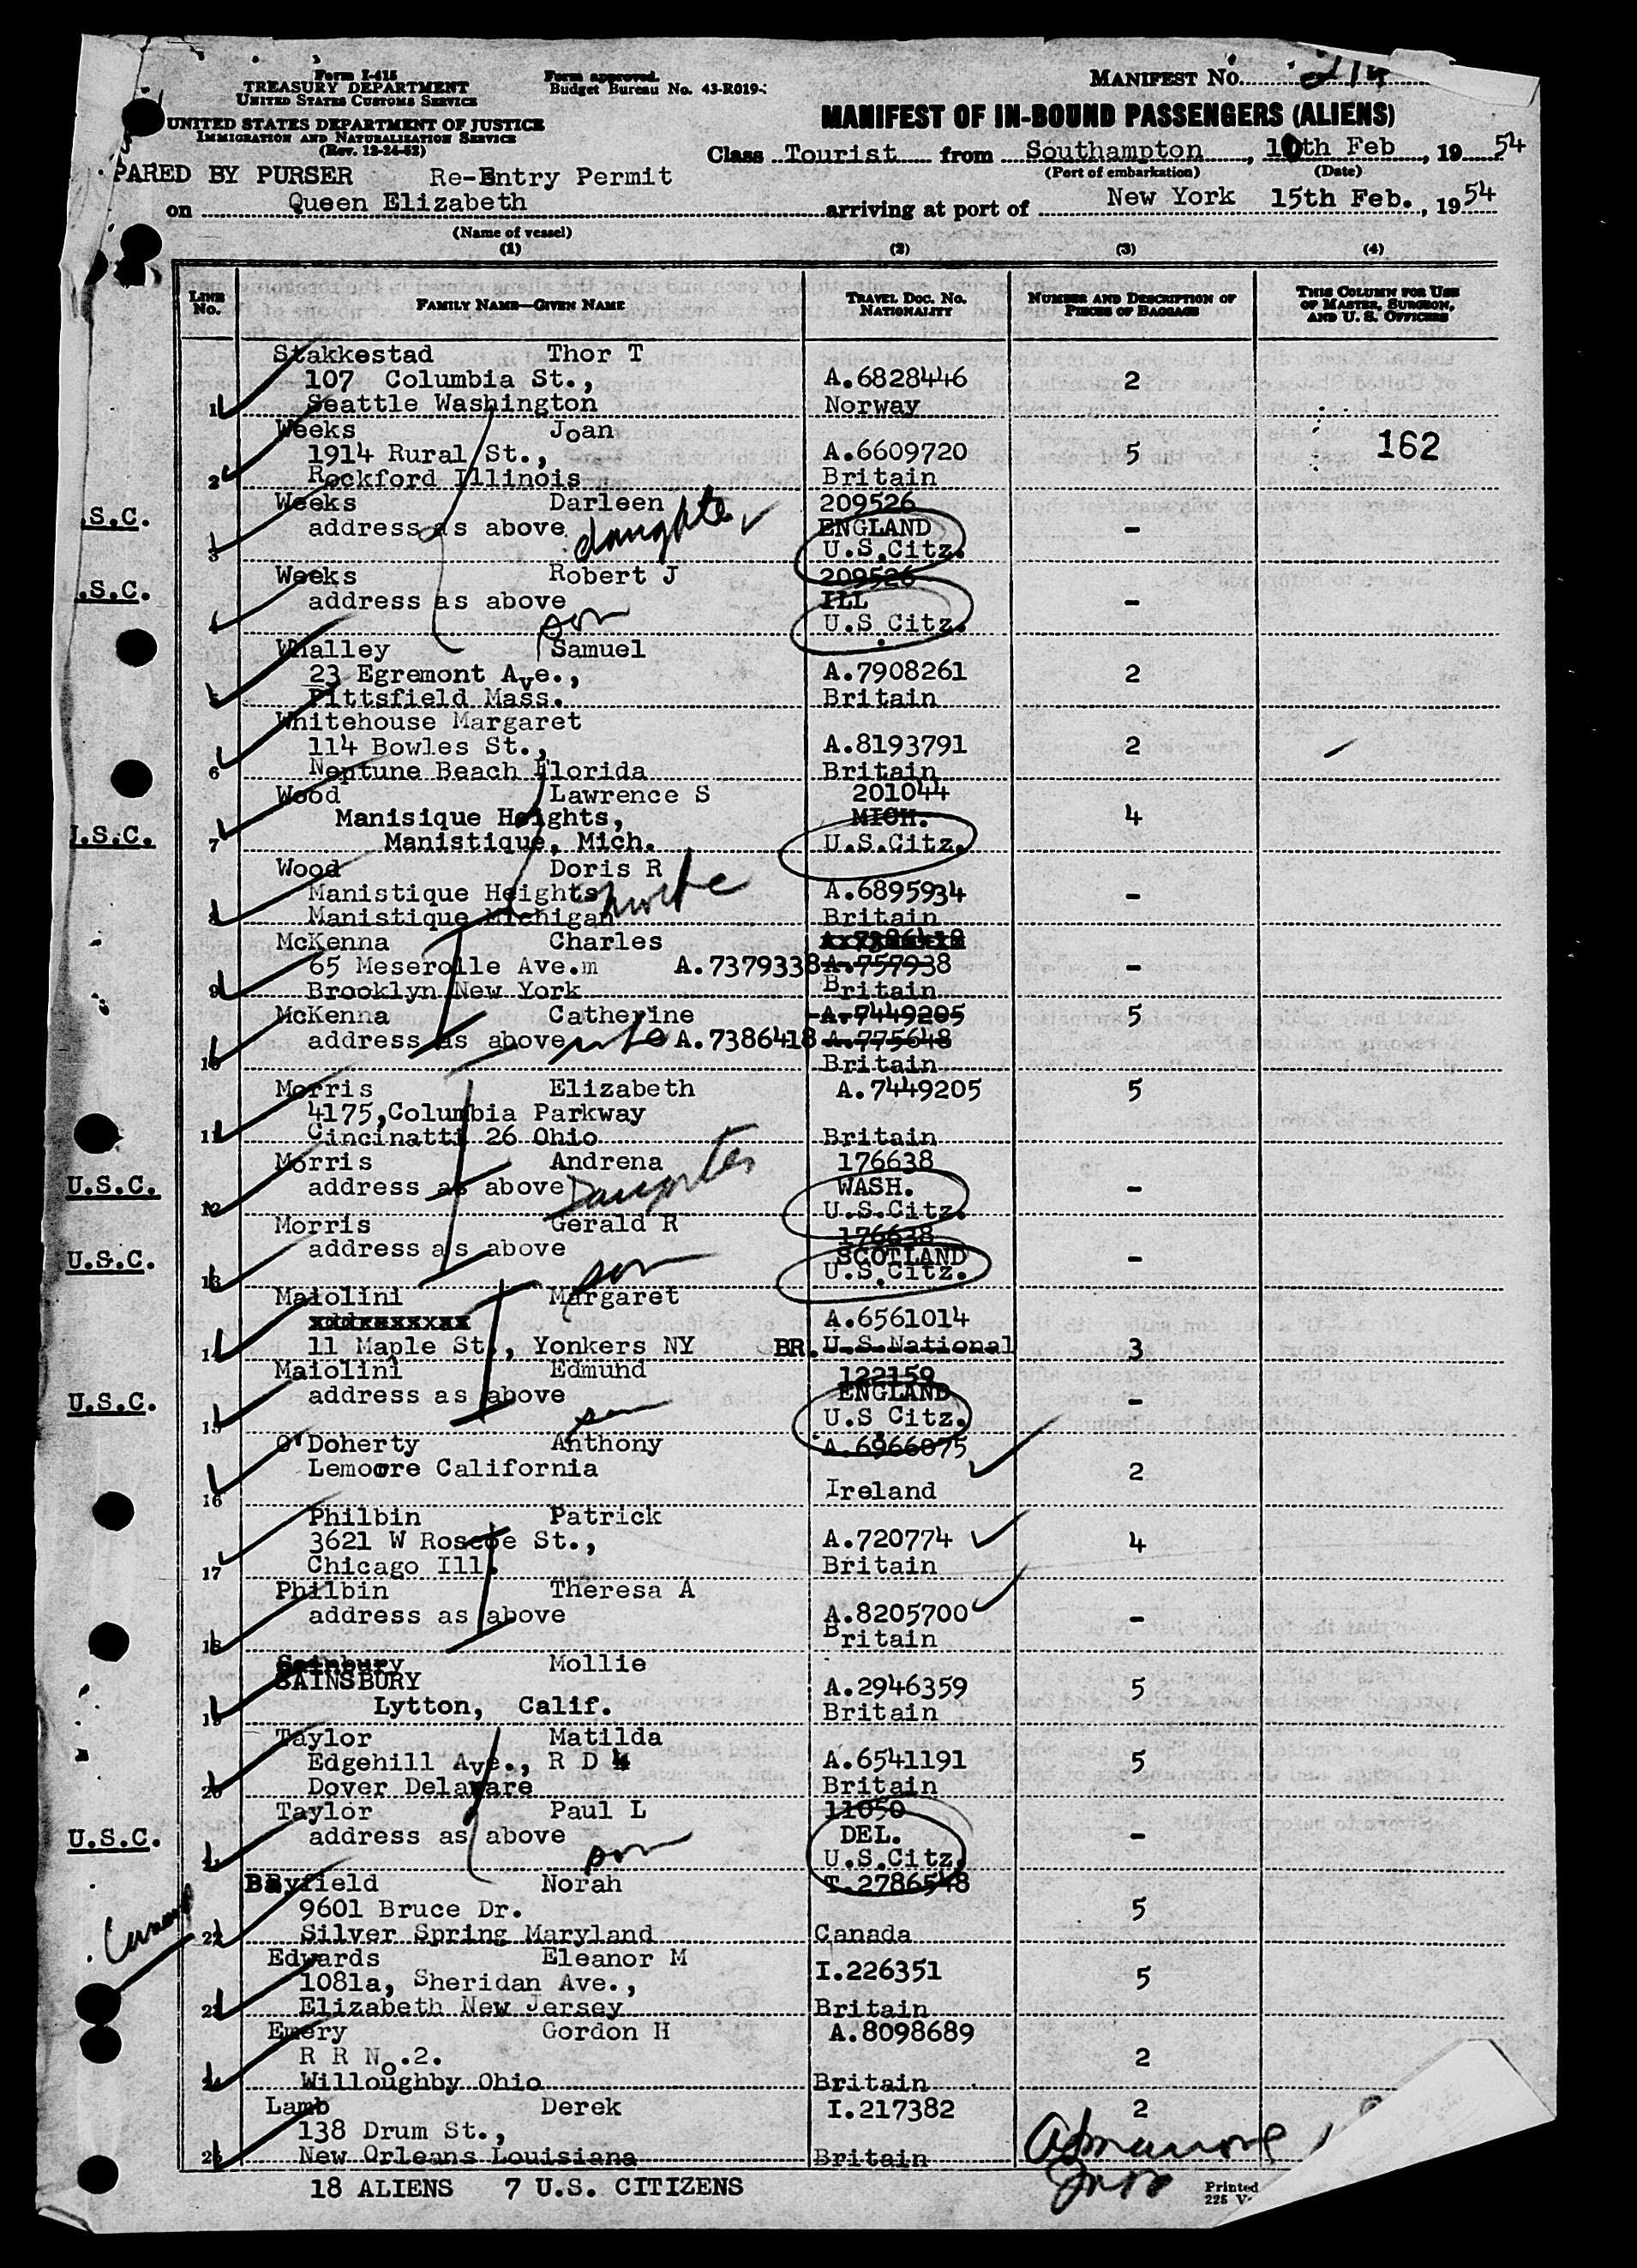 Form I-415
TREASURY DEPARTMENT
UNITED STATES CUSTOMS SERVICE
Form approved.
Budget Bureau No. 43-R019-
MANIFEST NO.
UNITED STATES DEPARTMENT OF JUSTICE
IMMIGRATION AND NATURALIZATION SERVICE
(Rev. 12-24-52)
MANIFEST OF IN-BOUND PASSENGERS (ALIENS)
Class Tourist from Southampton, 10th Feb, 19 54
(Port of embarkation) (Date)
PARED BY PURSER Re-Entry Permit
on Queen Elizabeth arriving at port of New York 15th Feb., 19 54
(Name of vessel)
(1) (2) (3) (4)
LINE No. FAMILY NAME—GIVEN NAME TRAVEL DOC. NO. NATIONALITY NUMBER AND DESCRIPTION OF PIECES OF BAGGAGE THIS COLUMN FOR USE OF MASTER, SURGEON, AND U. S. OFFICERS
Stakkestad Thor T
107 Columbia St., A.6828446 2
1 Seattle Washington Norway
Weeks Joan 162
1914 Rural St., A.6609720 5
2 Rockford Illinois Britain
Weeks Darleen 209526
.S.C. address as above daughter ENGLAND -
3 U.S.Citz.
Weeks Robert J 209526
.S.C. address as above ILL -
4 son U.S.Citz.
Whalley Samuel
23 Egremont Ave., A.7908261 2
5 Pittsfield Mass. Britain
Whitehouse Margaret
114 Bowles St., A.8193791 2
6 Neptune Beach Florida Britain
Wood Lawrence S 201044
Manisique Heights, MICH. 4
.S.C. 7 Manistique, Mich. U.S.Citz.
Wood Doris R
Manistique Heights A.6895934 -
8 Manistique Michigan Britain
McKenna Charles A.7386418
65 Meserolle Ave.m A.7379338 A.757938 -
9 Brooklyn New York Britain
McKenna Catherine A.7449205 5
address as above wife A.7386418 A.775648
10 Britain
Morris Elizabeth A.7449205 5
4175,Columbia Parkway
11 Cincinatti 26 Ohio Britain
Morris Andrena 176638
U.S.C. address as above Daughter WASH. -
12 U.S.Citz.
Morris Gerald R 176638
U.S.C. address as above SCOTLAND -
13 son U.S.Citz.
Maiolini Margaret
A.6561014
14 11 Maple St., Yonkers NY BR. U.S.National 3
Maiolini Edmund 122159
U.S.C. address as above ENGLAND -
15 son U.S Citz.
O'Doherty Anthony A.6966075
Lemoore California 2
16 Ireland
Philbin Patrick
3621 W Roscoe St., A.720774 4
17 Chicago Ill. Britain
Philbin Theresa A
address as above A.8205700 -
18 Britain
Sainbury Mollie
SAINSBURY A.2946359 5
19 Lytton, Calif. Britain
Taylor Matilda
Edgehill Ave., R D 4 A.6541191 5
20 Dover Delaware Britain
Taylor Paul L 11050
U.S.C. address as above DEL. -
21 son U.S.Citz.
Bayfield Norah T.2786548
9601 Bruce Dr. 5
22 Silver Spring Maryland Canada
Edwards Eleanor M I.226351
1081a, Sheridan Ave., 5
23 Elizabeth New Jersey Britain
Emery Gordon H A.8098689
R R No.2. 2
24 Willoughby Ohio Britain
Lamb Derek I.217382 2
138 Drum St.,
25 New Orleans Louisiana Britain
18 ALIENS 7 U.S. CITIZENS
Printed
225 V